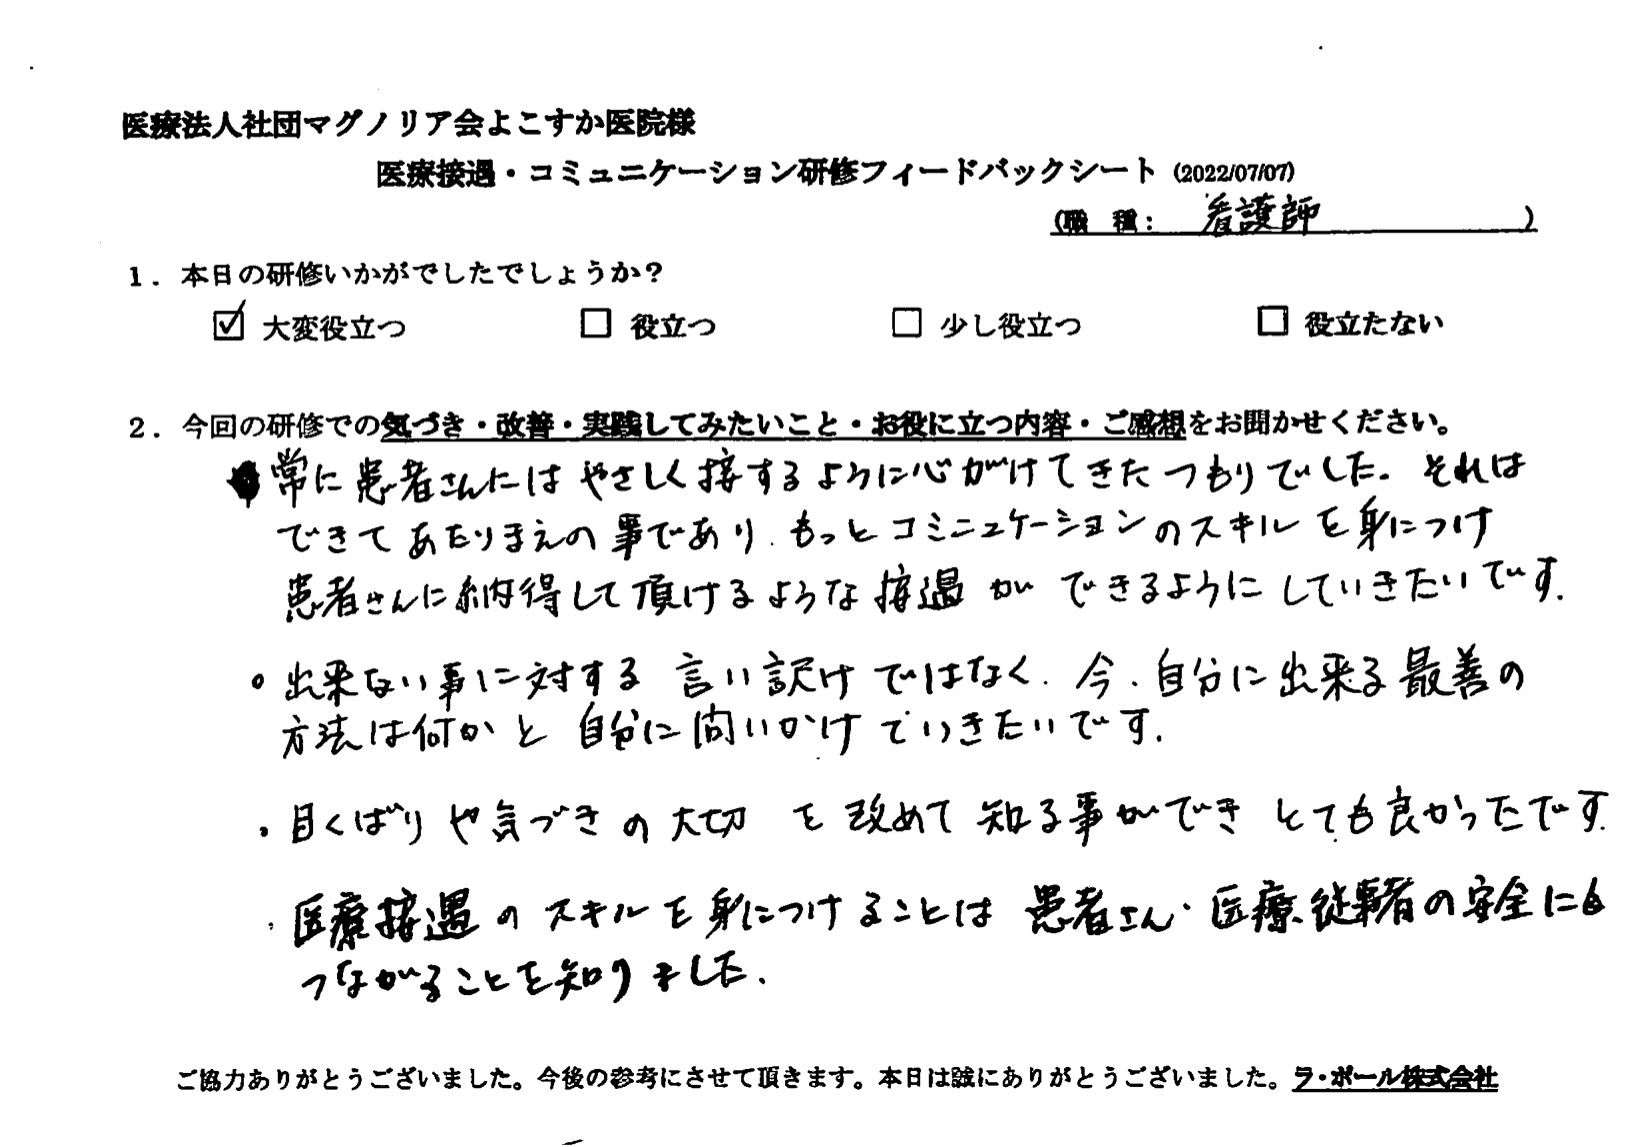 医療法人社団マグノリア会よこすか医院様
医療接遇・コミュニケーション研修フィードバックシート (2022/07/07)
(職 種： 看護師 )
1．本日の研修いかがでしたでしょうか？
☑ 大変役立つ □ 役立つ □ 少し役立つ □ 役立たない
2．今回の研修での気づき・改善・実践してみたいこと・お役に立つ内容・ご感想をお聞かせください。
常に患者さんにはやさしく接するように心がけてきたつもりでした。それは
できてあたりまえの事であり．もっとコミニュケーションのスキルを身につけ
患者さんに納得して頂けるような接遇ができるようにしていきたいです．
。出来ない事に対する言い訳けではなく．今．自分に出来る最善の
方法は何かと自分に問いかけていきたいです．
・目くばりや気づきの大切を改めて知る事ができとても良かったです．
・医療接遇のスキルを身につけることは患者さん・医療従事者の安全にも
つながることを知りました．
ご協力ありがとうございました。今後の参考にさせて頂きます。本日は誠にありがとうございました。ラ・ポール株式会社